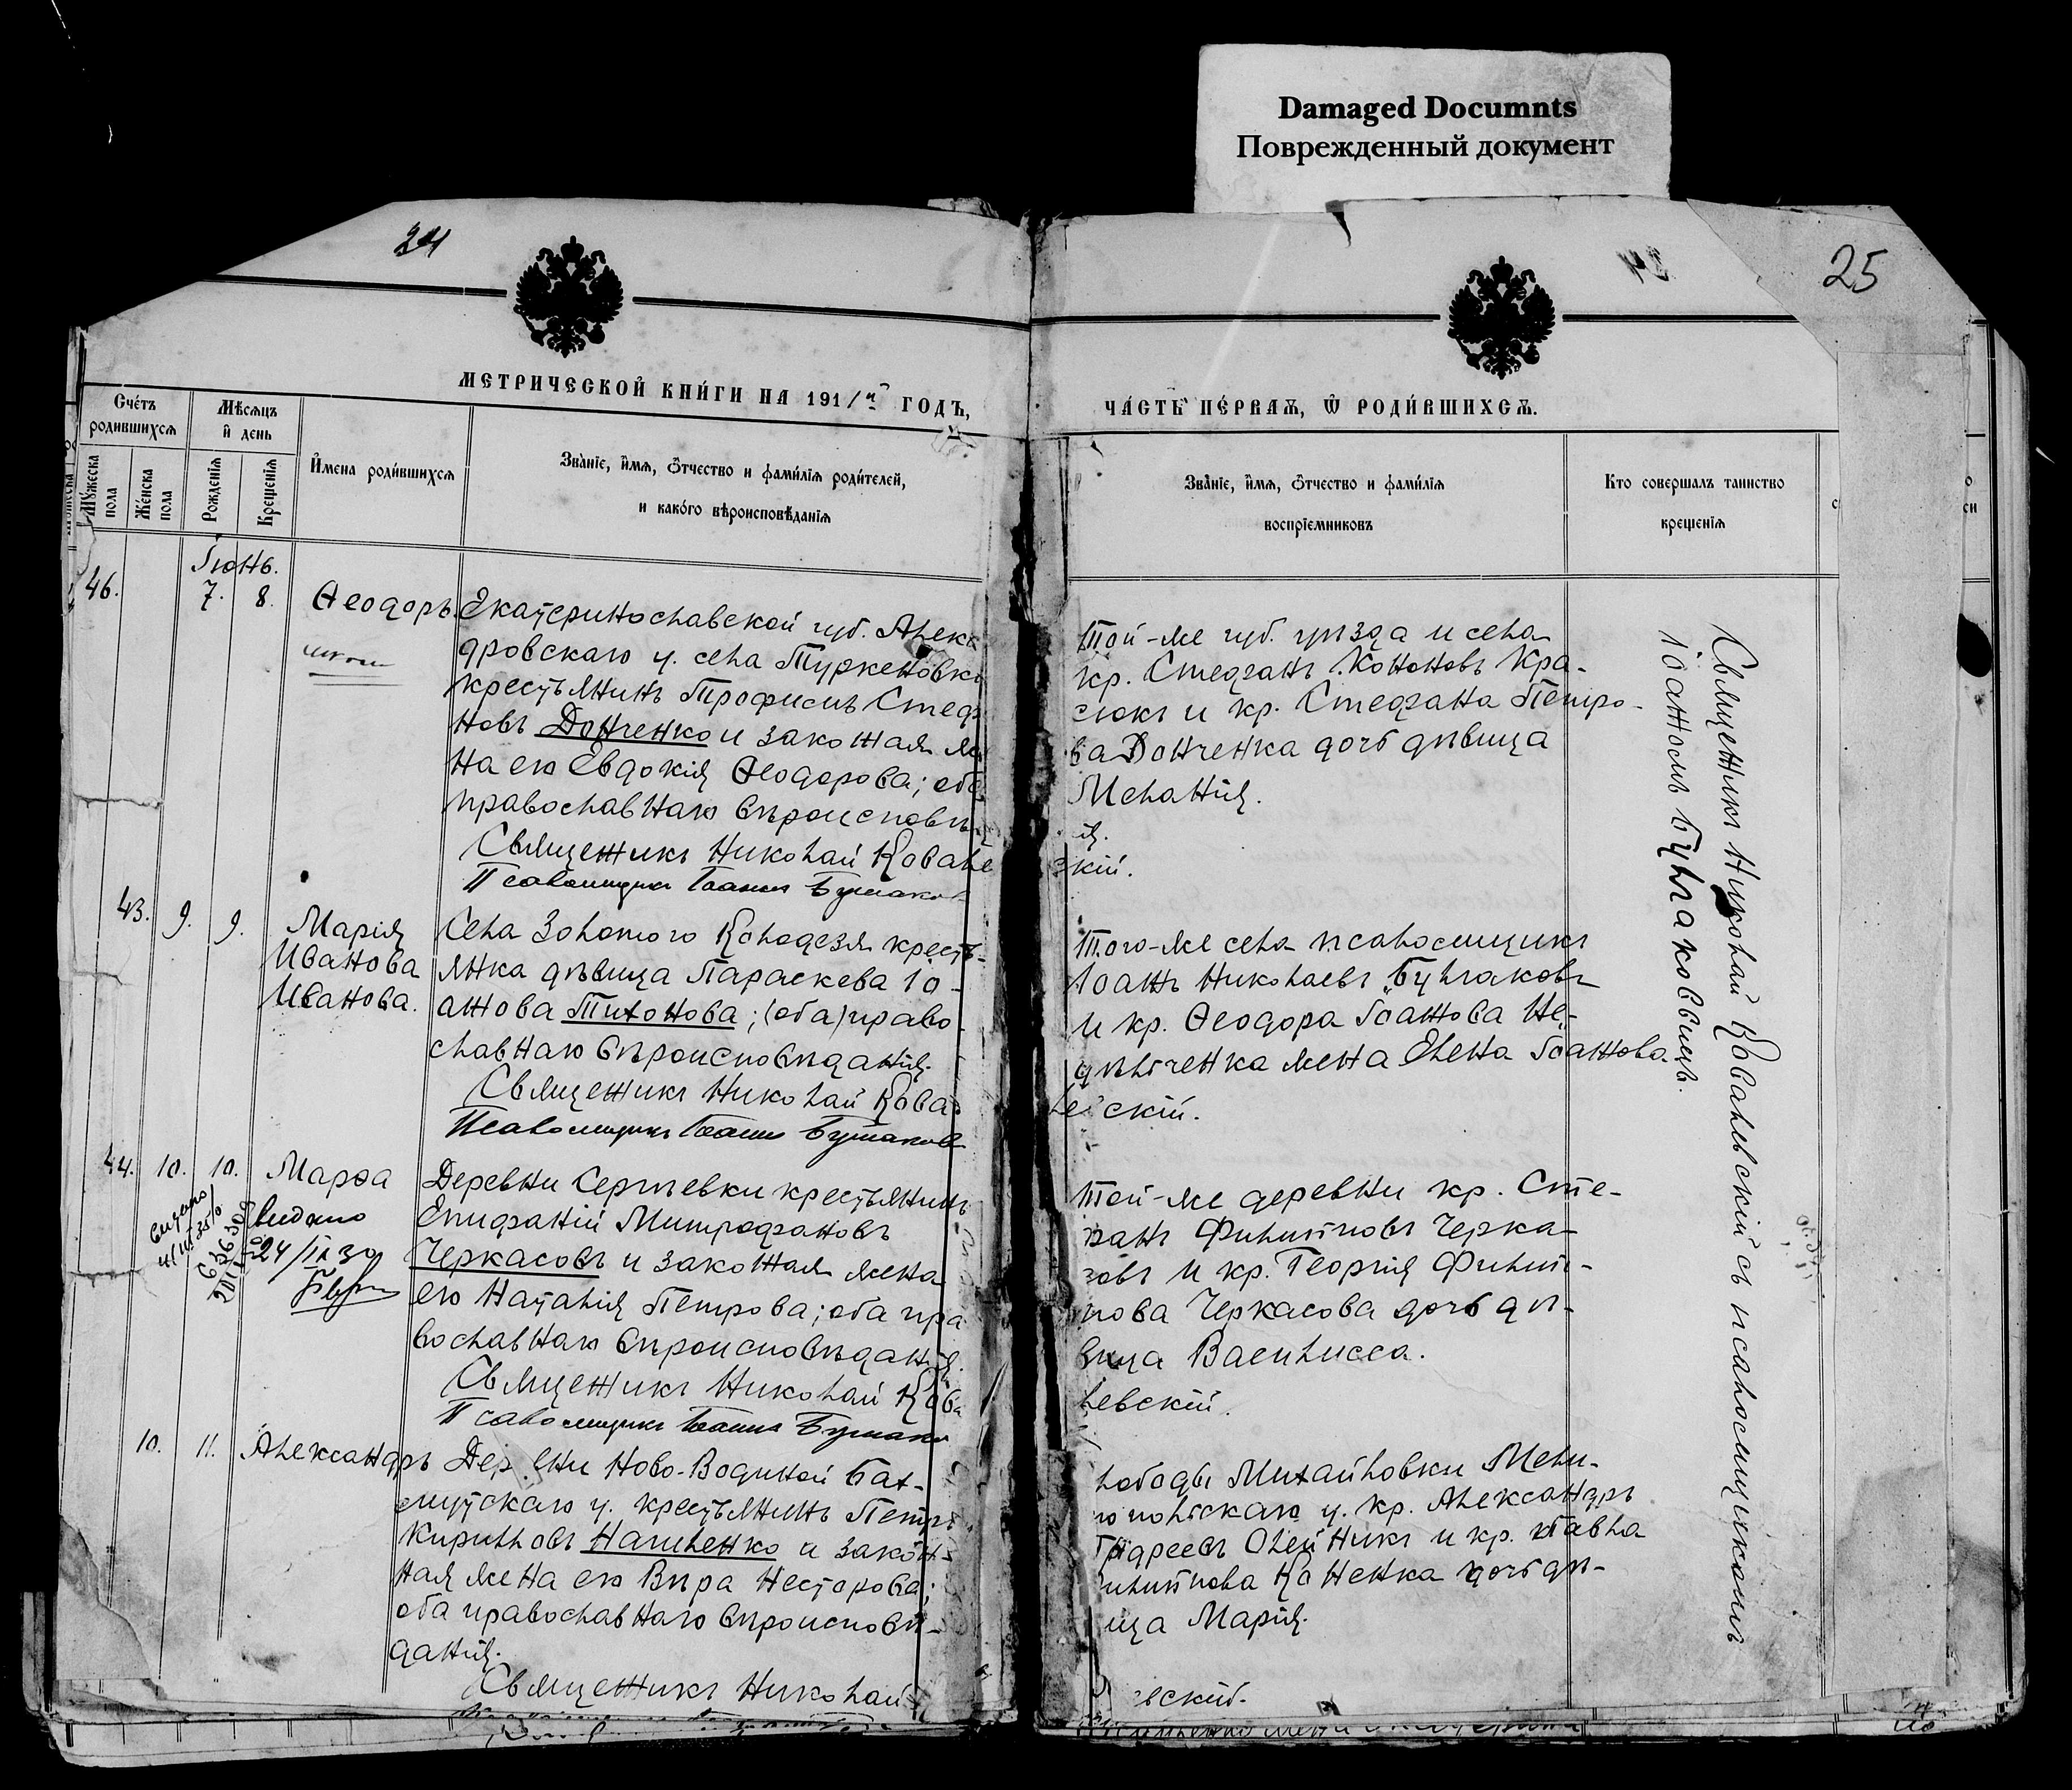 Damaged Documnts
Поврежденный документ
24
25
МЕТРИЧЕСКОЙ КНИГИ НА 1911й ГОДЪ,
ЧАСТЬ ПЕРВАЯ, Ѡ РОДИВШИХСЯ.
Счетъ родившихся
Мужеска пола
Женска пола
Мѣсяцъ и день
Рожденія
Крещенія
Имена родившихся
Званіе, имя, ѿчество и фамилія родителей,
и какого вѣроисповѣданія
Званіе, имя, ѿчество и фамилія
воспріемниковъ
Кто совершалъ таинство
крещенія
Іюнь.
46.
7. 8.
Ѳеодоръ.
Екатеринославской губ. Алекс
дровскаго у. села Туркеновк
крестьянинъ Трофимъ Стеф
новъ Донченко и законная же
на его Евдокія Ѳеодорова; оба
православнаго вѣроисповѣ
Священникъ Николай Ковале
Псаломщикъ Іоаннъ Булгаков
Той-же губ. уѣзда и села
кр. Стефанъ Кононовъ Кра-
сюкъ и кр. Стефана Петро-
ва Донченка дочь дѣвица
Меланія.
ія.
скій.
43. 9. 9.
Марія
Иванова
Иванова.
Села Золотого Колодезя кресть-
янка дѣвица Параскева Іо-
аннова Тихонова; (оба) право-
славнаго вѣроисповѣданія.
Священникъ Николай Кова
Псаломщикъ Іоаннъ Булгаков
Того-же села псаломщикъ
Іоаннъ Николаевъ Булгаковъ
и кр. Ѳеодора Іоаннова Не-
дѣльченка жена Елена Іоаннова.
левскій.
44. 10. 10.
Марѳа
Видано
24/IX 30
Деревни Сергѣевки крестьянинъ
Епифаній Митрофановъ
Черкасовъ и законная жена
его Наталія Петрова; оба пра
вославнаго вѣроисповѣданія.
Священникъ Николай Кова
Псаломщикъ Іоаннъ Булгако
Той-же деревни кр. Сте-
фанъ Филипповъ Черка-
совъ и кр. Георгія Филип-
пова Черкасова дочь дѣ-
вица Василисса.
левскій.
10. 11.
Александръ
Деревни Ново-Водяной Бах-
мутскаго у. крестьянинъ Петръ
Кирилловъ Нагиленко и закон-
ная жена его Вѣра Несторова;
оба православнаго вѣроисповѣ-
данія.
Священникъ Николай
лободы Михайловки Мели-
топольскаго у. кр. Александръ
Андреевъ Олейникъ и кр. Павла
илиппова Коненка дочь дѣ-
ица Марія.
вскій.
Священникъ Николай Ковалевскій съ псаломщикомъ
Іоанномъ Булгаковымъ.